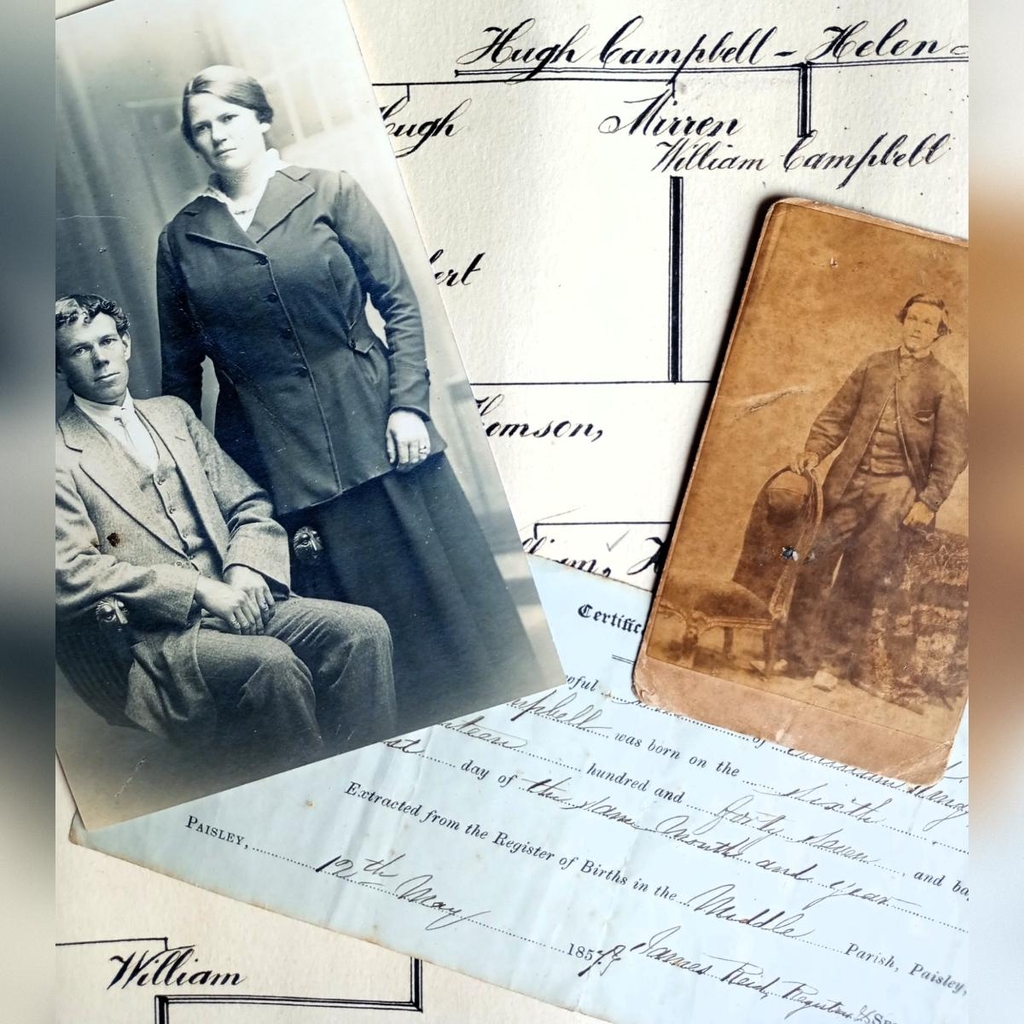 Hugh Campbell - Helen
Hugh
Mirren
William Campbell
Thomson,
William,
Certific
eful
Campbell was born on the sixth
hundred and forty seven, and ba
day of the same month and year
Extracted from the Register of Births in the Middle Parish, Paisley,
PAISLEY, 12th May 1857
James Reid, Registrar
William